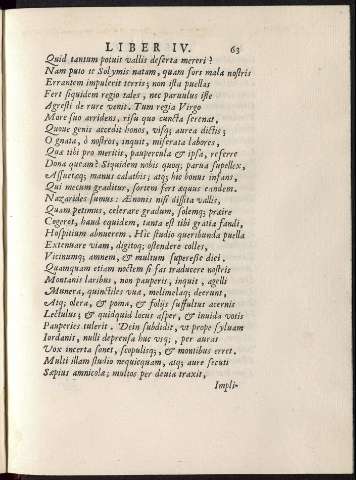 LIBER IV. 63
Quid tantum potuit vallis deserta mereri?
Nam puto te Solymis natam, quam sors mala nostris
Errantem impulerit terris; non ista puellas
Fert siquidem regio tales, nec paruulus iste
Agresti de rure venit. Tum regia Virgo
More suo arridens, risu quo cuncta serenat,
Quoue genis accedit honos, visq; aurea dictis;
O gnata, ô nostros, inquit, miserata labores,
Quæ tibi pro meritis, paupercula & ipsa, referre
Dona queam? Siquidem nobis quoq; parua supellex,
Assuetaq; manus calathis; atq; hic bonus infans,
Qui mecum graditur, sortem fert æquus eandem.
Nazarides sumus. Æmonis nisi dissita vallis,
Quam petimus, celerare gradum, solemq; præire
Cogeret, haud equidem, tanta est tibi gratia fandi,
Hospitium abnuerem. Hic studio queribunda puella
Extenuare viam, digitoq; ostendere colles,
Vicinumq; amnem, & multum superesse diei.
Quamquam etiam noctem si fas traducere nostris
Montanis laribus, non pauperis, inquit, agelli
Munera, quinctiles vuæ, melimelaq; deerunt,
Atq; olera, & poma, & folijs suffultus acernis
Lectulus; & quidquid locus asper, & inuida votis
Pauperies tulerit. Dein subdidit, vt prope syluam
Iordanis, nulli deprensa huc vsq;, per auras
Vox incerta sonet, scopulisq;, & montibus erret.
Multi illam studio nequicquam, atq; aure secuti
Sæpius amnicolæ; multos per deuia traxit,
Impli-